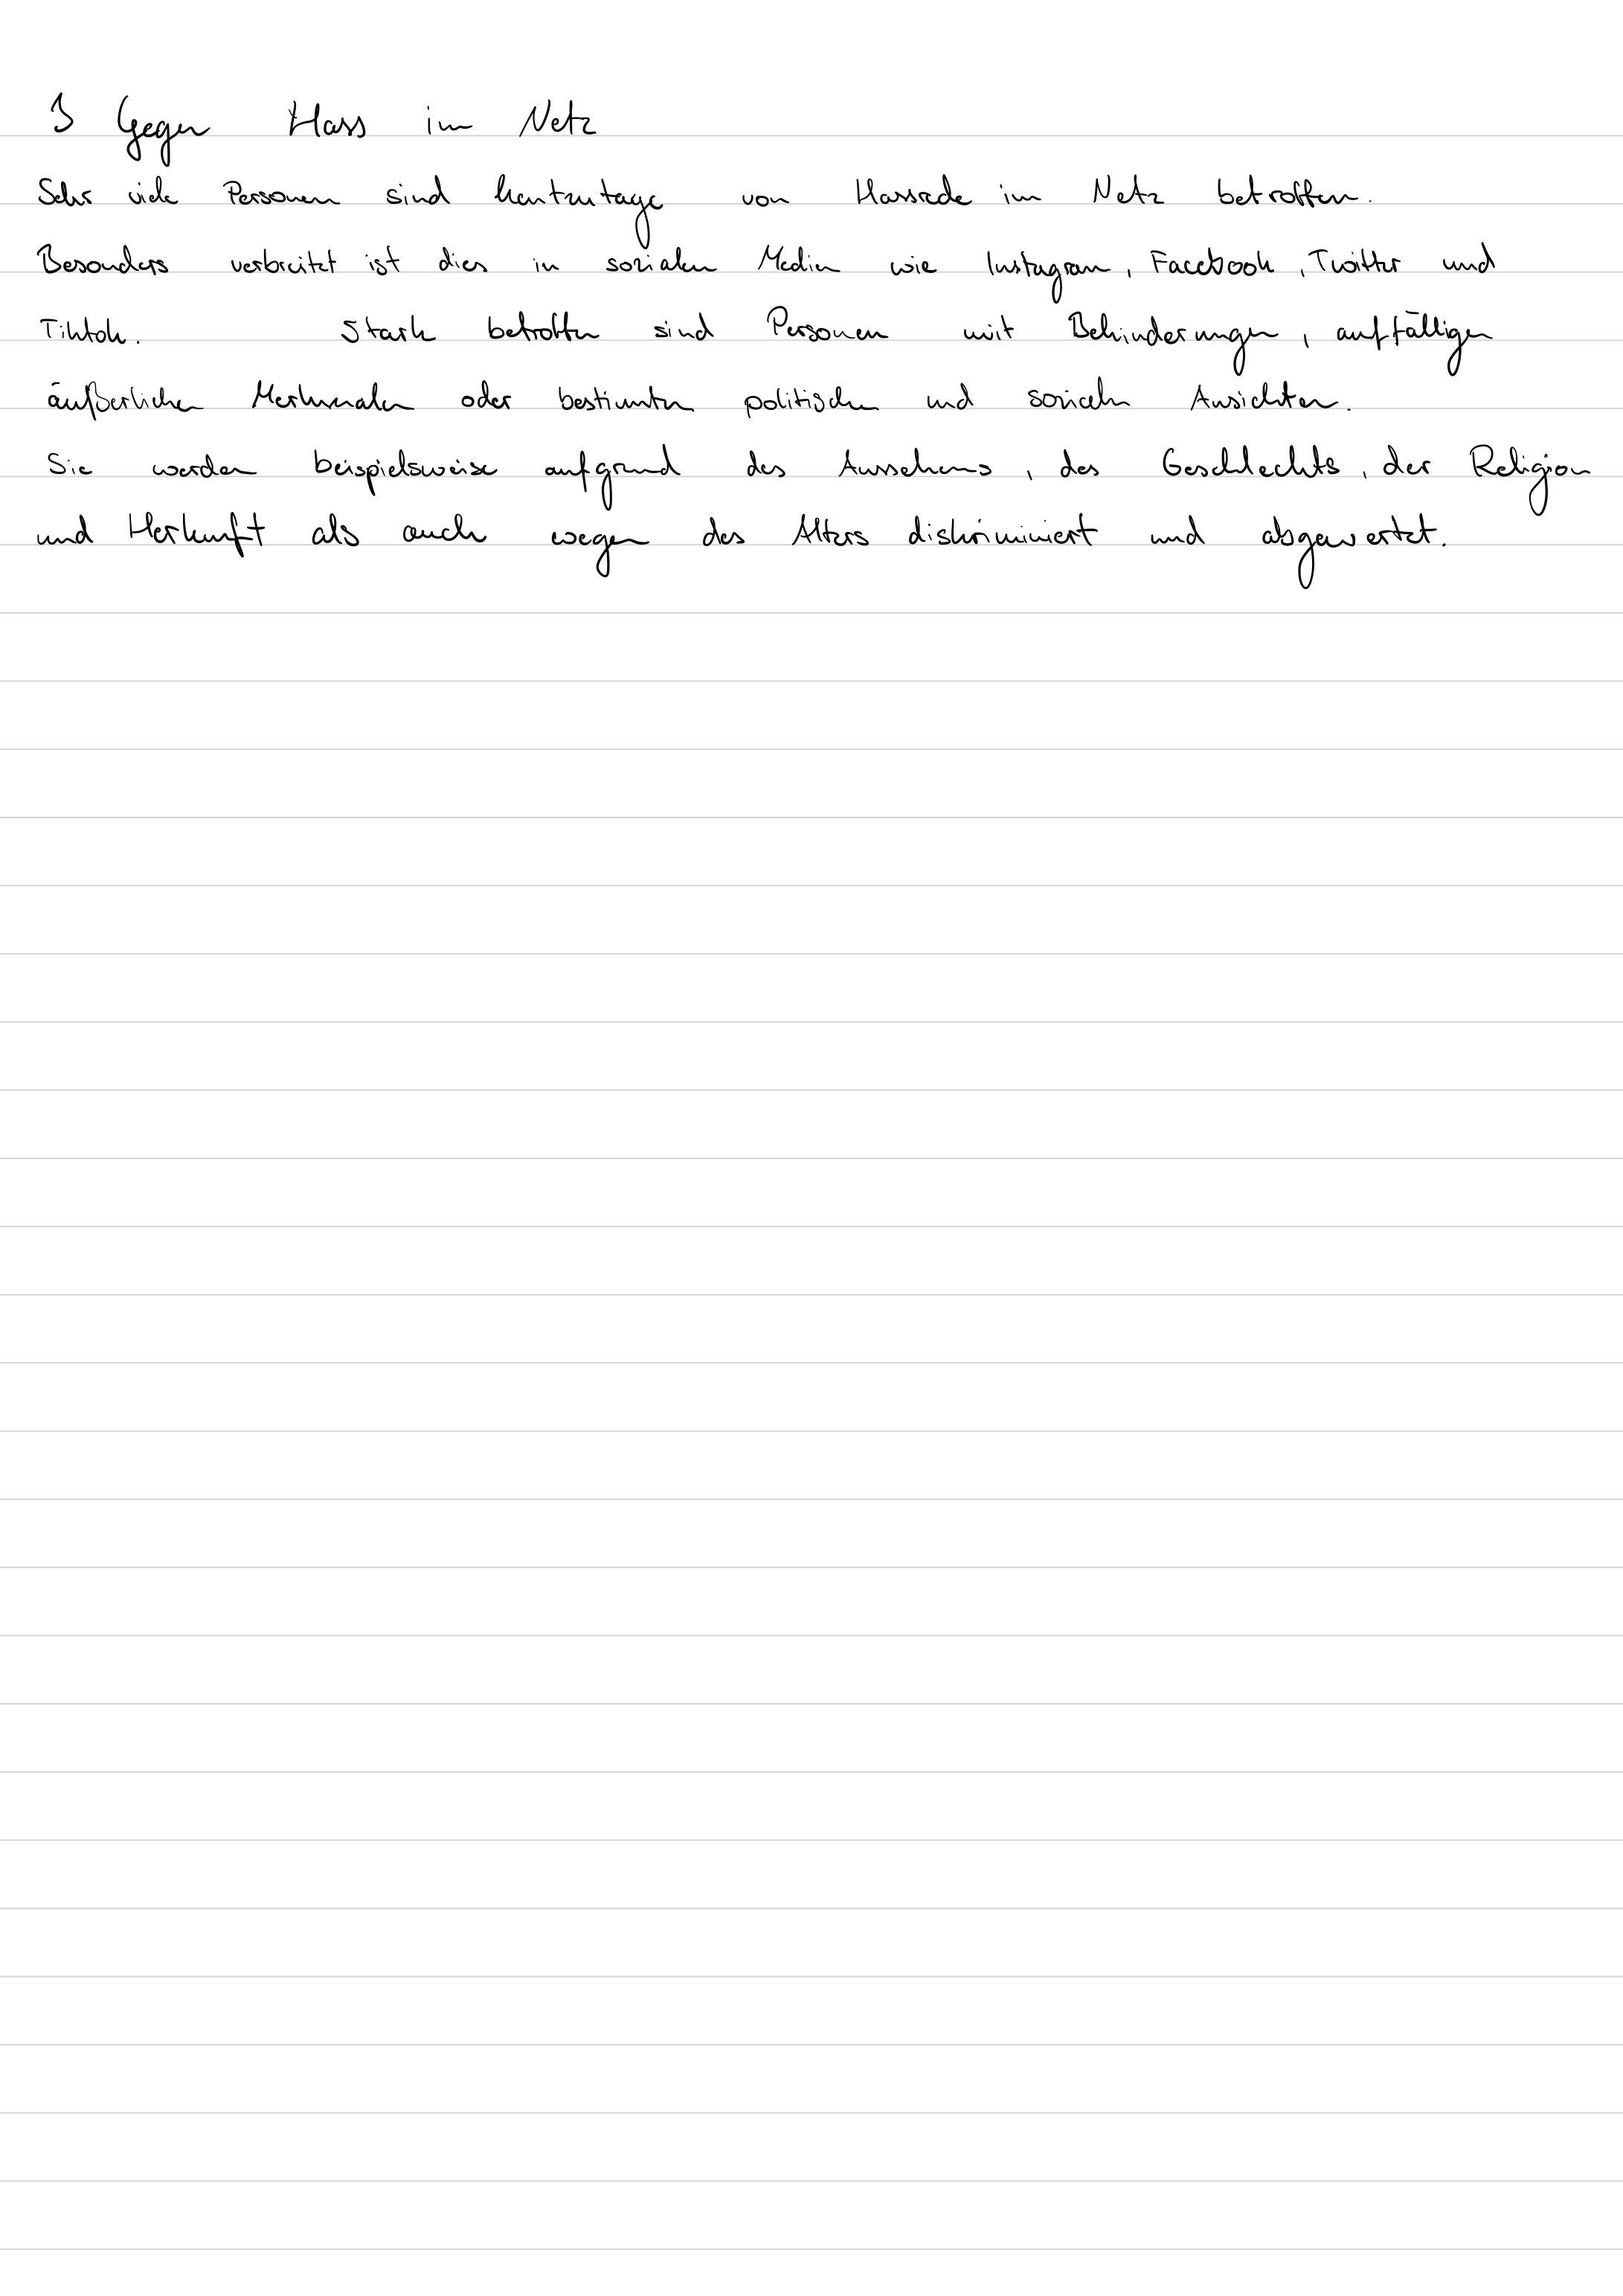 3 Gegen Hass im Netz
Sehr viele Personen sind heutzutage von Hassrede im Netz betroffen.
Besonders verbreitet ist dies in sozialen Medien wie Instagram, Facebook, Twitter und
Tiktok. Stark betroffen sind Personen mit Behinderungen, auffälligen
äußerlichen Merkmalen oder bestimmten politischen und sozialen Ansichten.
Sie werden beispielsweise aufgrund des Aussehens, des Geschlechts, der Religion
und Herkunft als auch wegen des Alters diskriminiert und abgewertet.